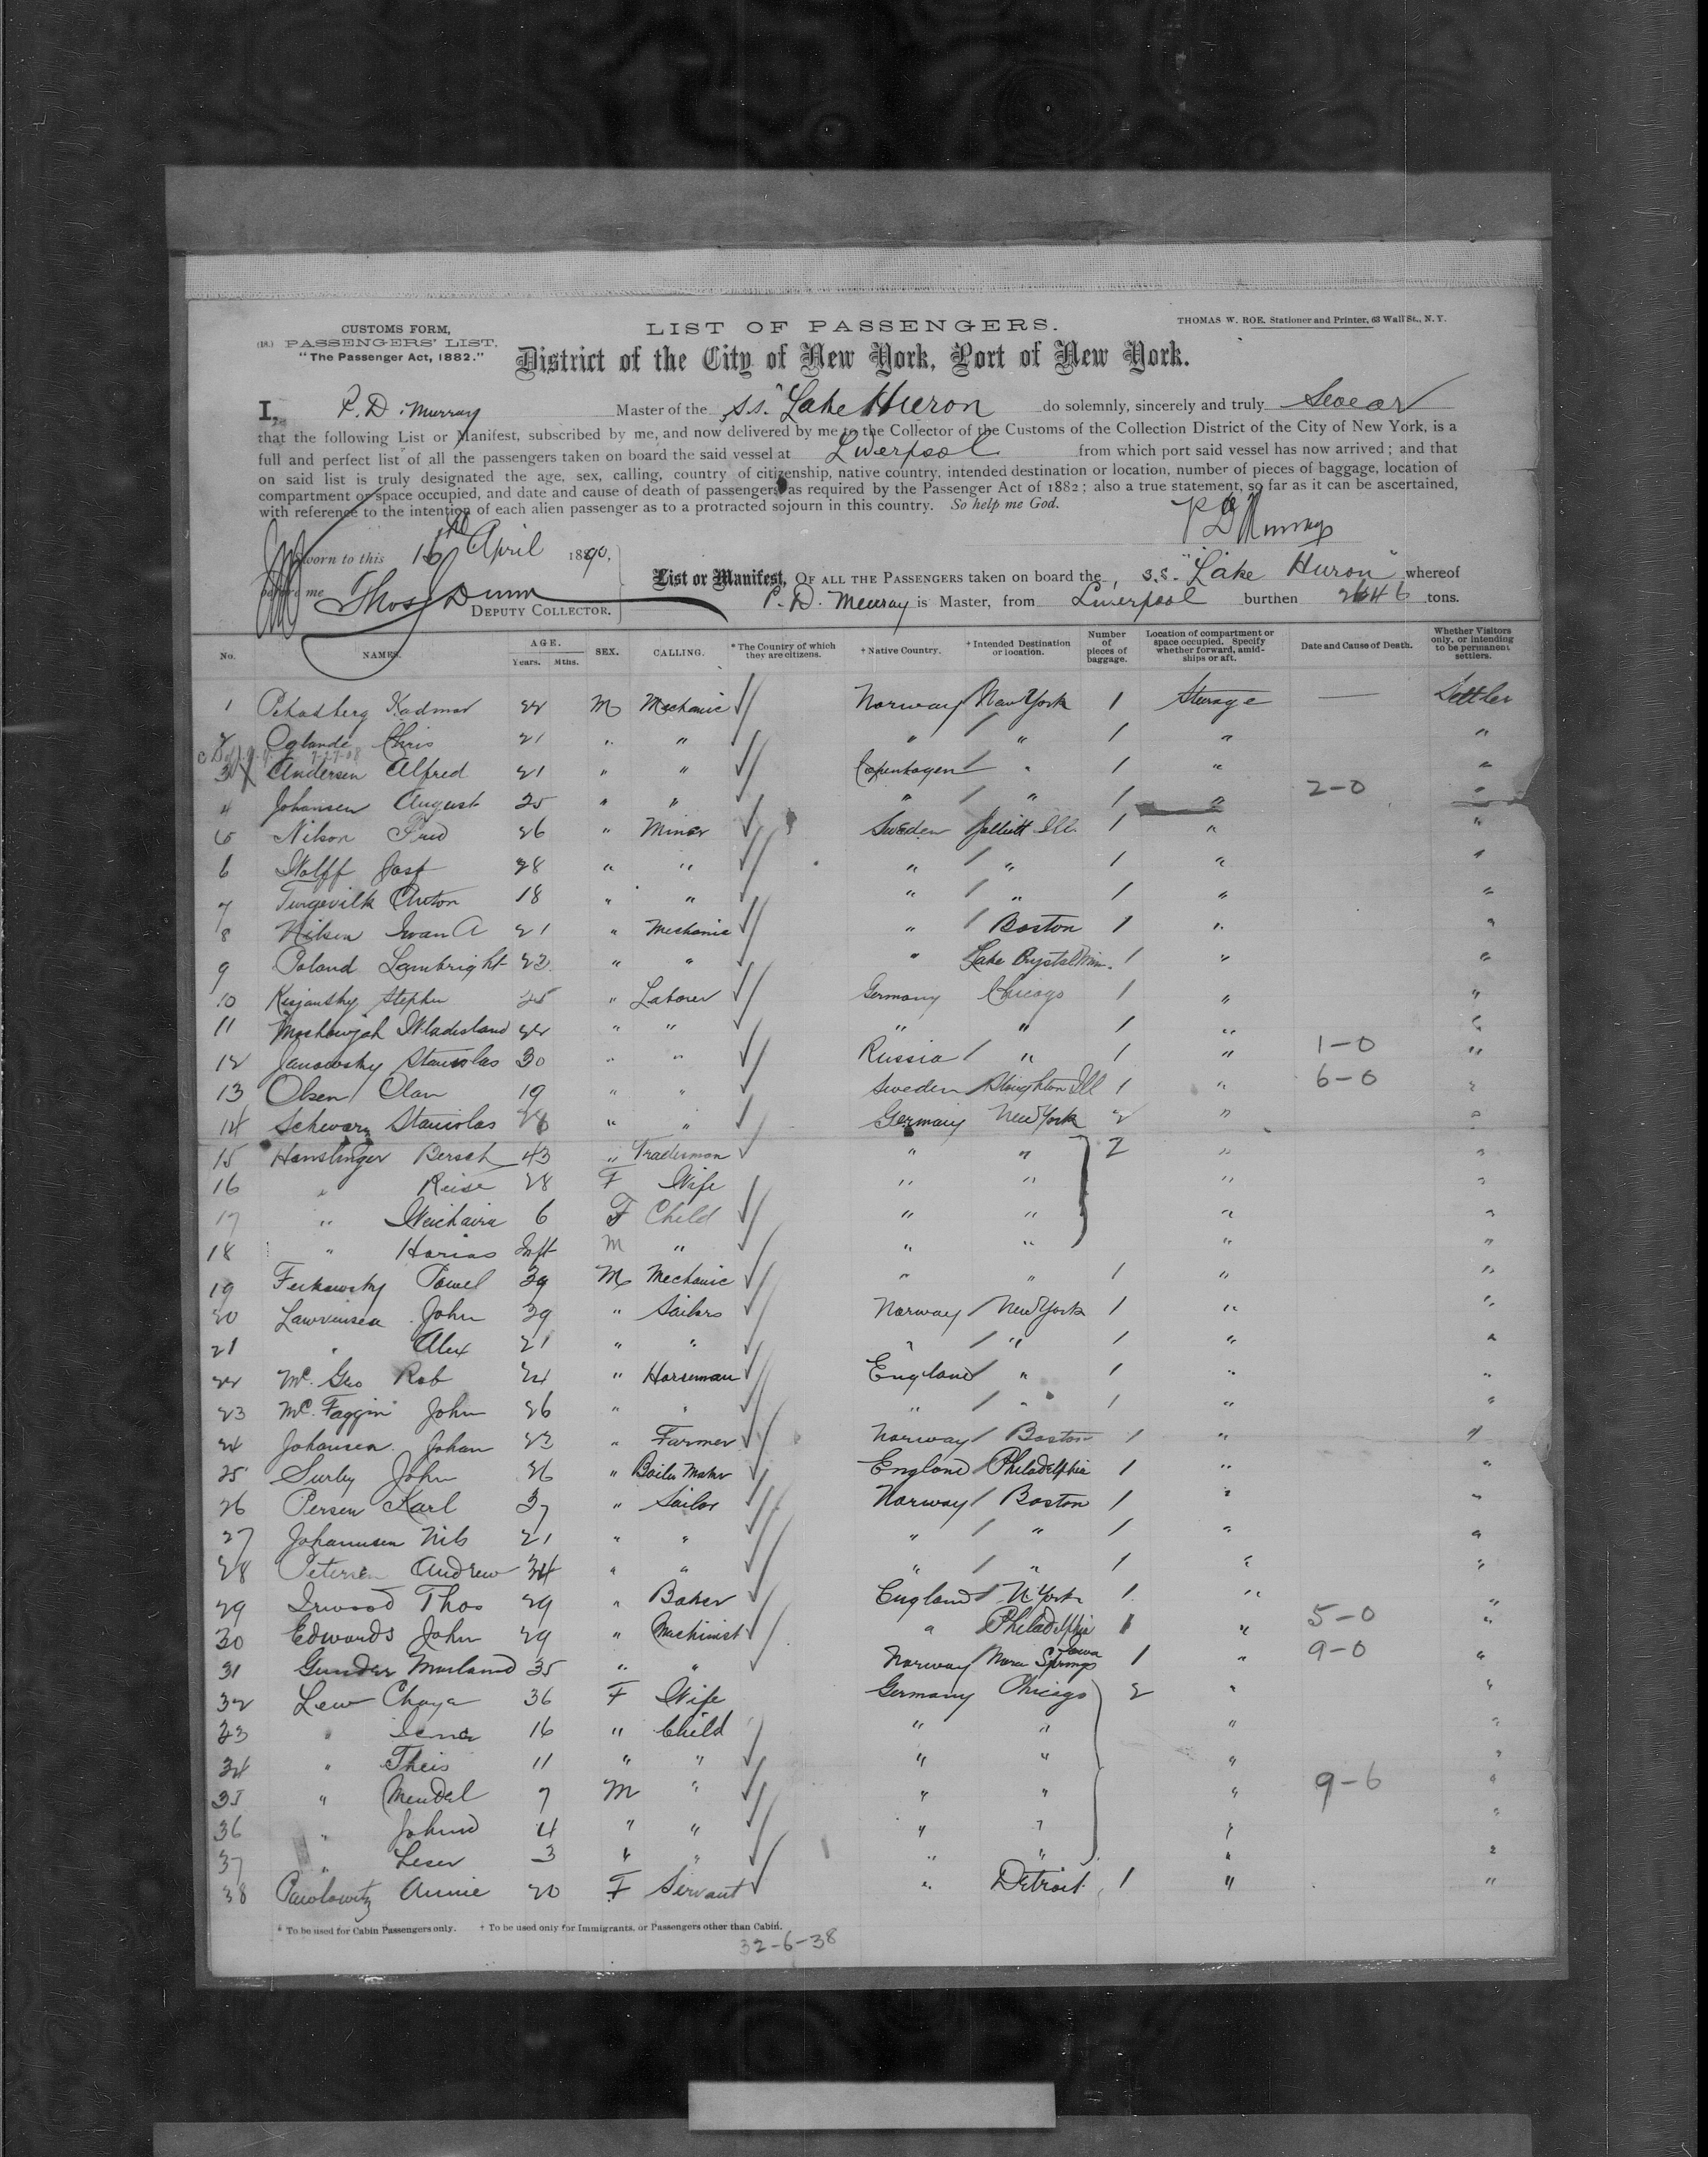 CUSTOMS FORM,
PASSENGERS' LIST.
"The Passenger Act, 1882."
LIST OF PASSENGERS.
THOMAS W. ROE, Stationer and Printer, 63 Wall St., N. Y.
District of the City of New York, Port of New York.
I, P. D. Murray Master of the S.S. "Lake Huron do solemnly, sincerely and truly Swear
that the following List or Manifest, subscribed by me, and now delivered by me to the Collector of the Customs of the Collection District of the City of New York, is a
full and perfect list of all the passengers taken on board the said vessel at Liverpool from which port said vessel has now arrived; and that
on said list is truly designated the age, sex, calling, country of citizenship, native country, intended destination or location, number of pieces of baggage, location of
compartment or space occupied, and date and cause of death of passengers as required by the Passenger Act of 1882; also a true statement, so far as it can be ascertained,
with reference to the intention of each alien passenger as to a protracted sojourn in this country. So help me God.
P D Murray
Sworn to this 16th April 1890,
before me Thos Dunn
DEPUTY COLLECTOR.
List or Manifest, OF ALL THE PASSENGERS taken on board the, S.S. "Lake Huron" whereof
P. D. Murray is Master, from Liverpool burthen tons.
No. NAMES. AGE. Years. Mths. SEX. CALLING. * The Country of which they are citizens. † Native Country. † Intended Destination or location. Number of pieces of baggage. Location of compartment or space occupied. Specify whether forward, amidships or aft. Date and Cause of Death. Whether Visitors only, or intending to be permanent settlers.
1 Kadmar 22 M Mechanic Norway New York 1 Steerage — Settler
2 Oglande Chris 21 " " " " 1 " "
3 X Andersen Alfred 21 " " Copenhagen " 1 " "
4 Johansen August 25 " " " " 1 " 2-0 "
5 Nilson Fred 26 " Miner Sweden Jolliett Ill. 1 " "
6 Wolff Josf 28 " " " " 1 " "
7 Anton 18 " " " " 1 " "
8 Nilsen Iwan A 21 " Mechanic " Boston 1 " "
9 Poland Lambright 22 " " " Lake Crystal Minn. 1 " "
10 Stephen 25 " Laborer Germany Chicago 1 " "
11 Wladisland 22 " " " " 1 " "
12 Janowsky Stanislas 30 " " Russia " 1 " 1-0 "
13 Olsen Olan 19 " " Sweden Stoughton Ill 1 " 6-0 "
14 Schwarz Stanislas " " Germany New York 2 " "
15 Hanslinger Bersch 43 " Tradesman " " 2 " "
16 " Reise 28 F Wife " " " "
17 " 6 F Child " " " "
18 " Harias Inft M " " " " "
19 Powel 39 M Mechanic " " 1 " "
20 John 29 " Sailors Norway New York 1 " "
21 " Alex 21 " " " " 1 " "
22 Mc. Geo Rob 24 " Horseman England " 1 " "
23 Mc. Faggin John 26 " " " " 1 " "
24 Johansen Johan 23 " Farmer Norway Boston 1 " "
25 Surby John 26 " Boiler Maker England Philadelphia 1 " "
26 Persen Karl 37 " Sailor Norway Boston 1 " "
27 Johannsen Nils 21 " " " " 1 " "
28 Petersen Andrew 34 " " " " 1 " "
29 Irwood Thos 29 " Baker England N. York 1 " "
30 Edwards John 29 " Machinist " Philadelphia 1 " 5-0 "
31 Gunder Morland 35 " " Norway Springs Iowa 1 " 9-0 "
32 Lew Chaya 36 F Wife Germany Chicago 2 " "
33 " 16 " Child " " " "
34 " Theis 11 " " " " " "
35 " Mendel 7 M " " " " 9-6 "
36 " 4 " " " " " "
37 " Leser 3 " " " " " "
38 Pawlowitz Annie 20 F Servant " Detroit 1 " "
* To be used for Cabin Passengers only. † To be used only for Immigrants, or Passengers other than Cabin.
32-6-38